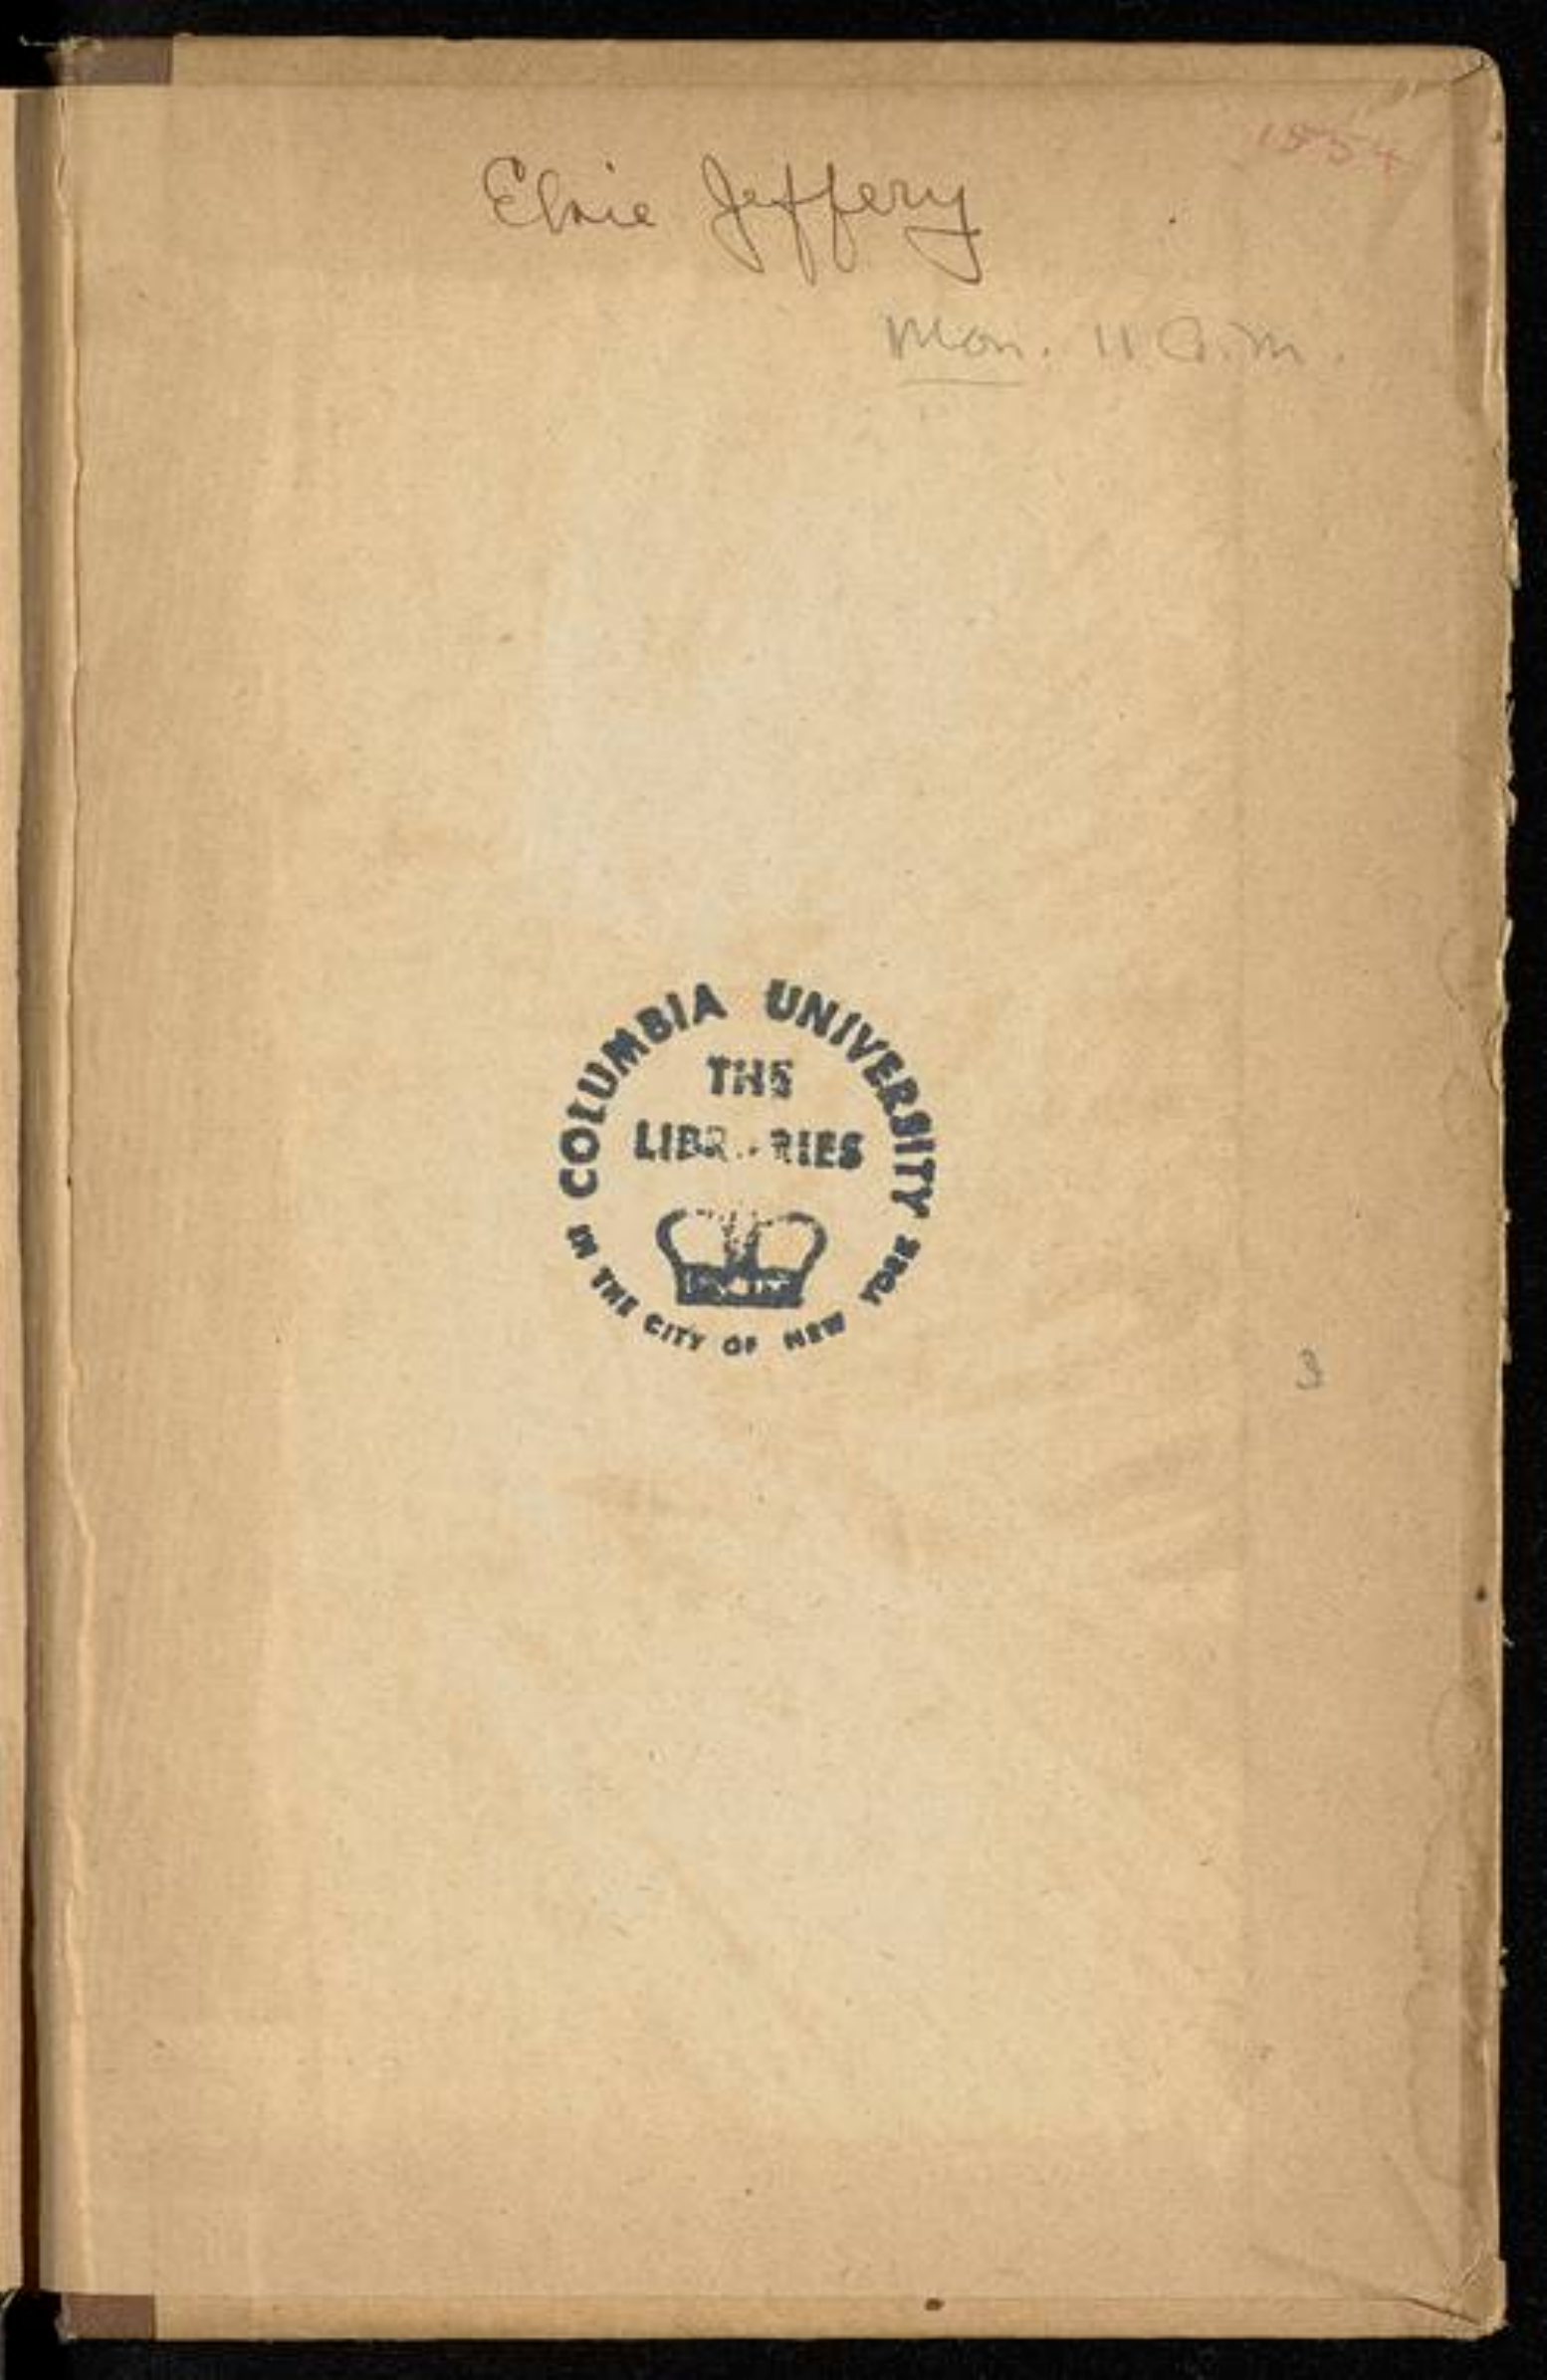 Elsie Jeffery
Mon. 11 a.m.
COLUMBIA UNIVERSITY
THE
LIBRARIES
IN THE CITY OF NEW YORK
3